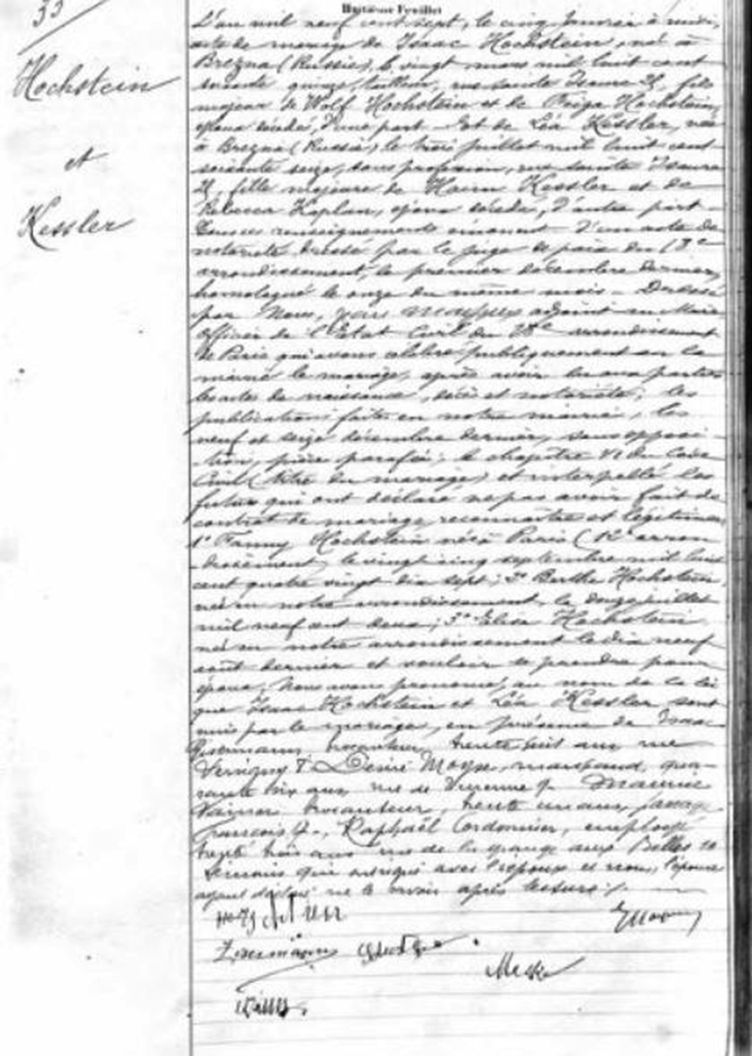 33
Huitième Feuillet
Hochstein
et
Kessler
L'an mil neuf cent sept, le cinq Janvier à midi,
acte de mariage de Isaac Hochstein, né à
Brezna (Russie), le vingt mars mil huit cent
soixante quinze, tailleur, rue Sainte Isaure 21, fils
majeur de Wolf Hochstein et de Hochstein,
époux décédés, d'une part. Et de Léa Kessler, née
à Brezna (Russie), le trois juillet mil huit cent
soixante seize, sans profession, rue Sainte Isaure
21, fille majeure de Haim Kessler et de
Rebecca Kaplan, époux décédés, d'autre part
renseignements émanent d'un acte de
notoriété dressé par le juge de paix du 18e
arrondissement, le premier décembre dernier,
homologué le onze du même mois. Dressé
par Nous, adjoint au Maire
officier de l'Etat Civil du 18e arrondissement
de Paris qui avons célébré publiquement en la
mairie le mariage, après avoir lu aux parties
les actes de naissance, décès et notoriété; les
publications faites en notre mairie, les
neuf et seize décembre dernier, sans opposi-
-tion, pièces parafées; le chapitre VI du Code
Civil (titre du mariage) et interpellé les
futurs qui ont déclaré ne pas avoir fait de
contrat de mariage, reconnaître et légitimer
1° Fanny Hochstein née à Paris ( arron-
-dissement, le vingt cinq septembre mil huit
cent quatre vingt dix sept; 2° Berthe Hochstein
née en notre arrondissement, le douze juillet
mil neuf cent deux; 3° Elisa Hochstein,
née en notre arrondissement le dix neuf
août dernier et vouloir se prendre pour
époux, Nous avons prononcé, au nom de la loi
que Isaac Hochstein et Léa Kessler sont
unis par le mariage, en présence de Isaac
brocanteur, trente huit ans rue
Versigny 7. Désiré Moyse, marchand, qua-
rante six ans, rue de Turenne Maurice
brocanteur, trente un ans,
Raphaël Cordonnier, employé
trente trois ans rue de la grange aux Belles 10
témoins qui ont signé avec l'époux et nous, l'épouse
ayant déclaré ne le savoir après lecture.